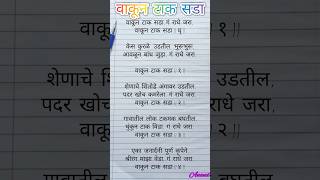 वाकून टाक सडा
वाकून टाक सडा गं राधे जरा
वाकून टाक सडा । धृ ।
केस कुरळे उडतील भुरूभुरू
आवळून बांध जुडा, गं राधे जरा,
वाकून टाक सडा । १ ।
शेणाचे शिंतोडे अंगावर उडतील
पदर खोच कमरेला, गं राधे जरा,
वाकून टाक सडा । २ ।
गावातील लोक टकमक बघतील
थुंकून टाक विडा, गं राधे जरा
वाकून टाक सडा । ३ ।
एका जनार्दनी पूर्ण कृपेने,
श्रीरंग माझा वेडा, गं राधे जरा,
वाकून टाक सडा । ४ ।